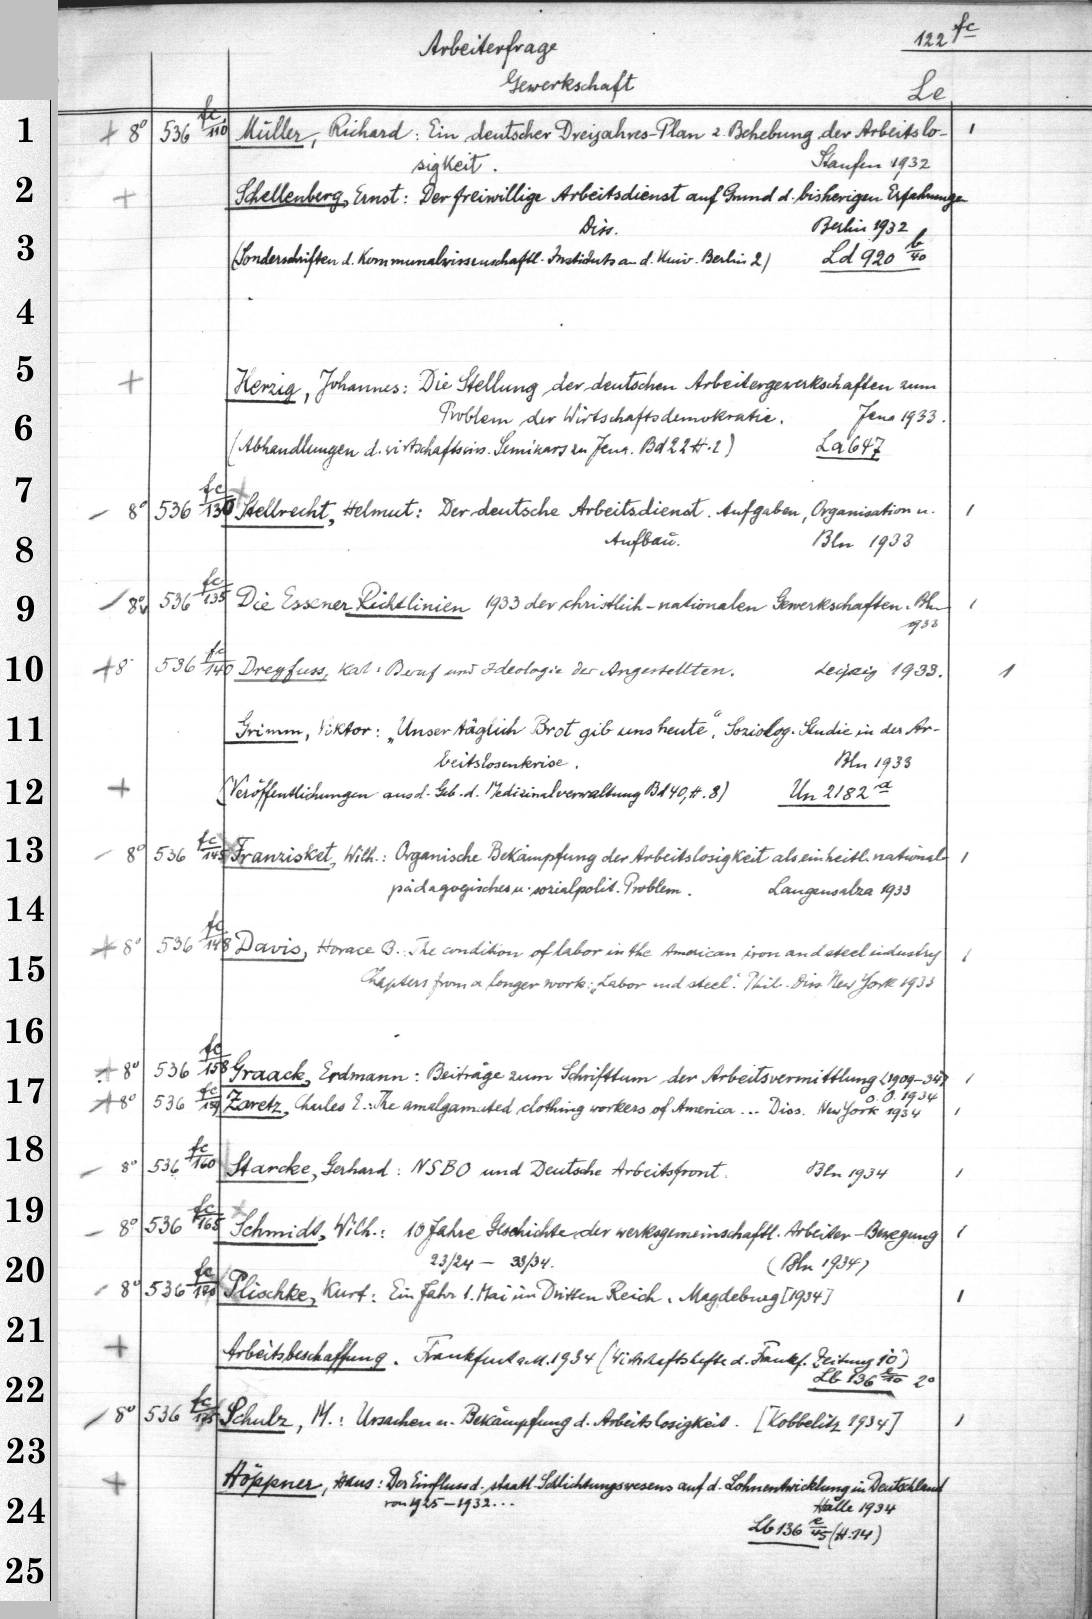 Arbeiterfrage 122 fc
Gewerkschaft
Le
1
+ 8° 536 fc/110 Müller, Richard: Ein deutscher Dreijahres-Plan z. Behebung der Arbeitslo- 1
sigkeit. Staufen 1932
2
+ Schellenberg, Ernst: Der freiwillige Arbeitsdienst auf Grund d. bisherigen Erfahrungen
Diss. Berlin 1932
3
(Sonderschriften d. Kommunalwissenschaftl. Instituts an d. Univ. Berlin 2) Ld 920 b/40
4
5
+ Herzig, Johannes: Die Stellung der deutschen Arbeitergewerkschaften zum
6
Problem der Wirtschaftsdemokratie. Jena 1933.
(Abhandlungen d. wirtschaftswiss. Seminars zu Jena. Bd 22 H. 2) La 647
7
– 8° 536 fc/130 Stellrecht, Helmut: Der deutsche Arbeitsdienst. Aufgaben, Organisation u. 1
8
Aufbau. Bln 1933
9
8° 536 fc/135 Die Essener Richtlinien 1933 der christlich-nationalen Gewerkschaften. Bln 1
1933
10
+ 8° 536 fc/140 Dreyfuss, Karl: Beruf und Ideologie der Angestellten. Leipzig 1933. 1
11
Grimm, Viktor: „Unser täglich Brot gib uns heute“, Soziolog. Studie in der Ar-
beitslosenkrise. Bln 1933
12
+ (Veröffentlichungen aus d. Geb. d. Medizinalverwaltung Bd 40, H. 8) Un 2182 a
13
– 8° 536 fc/145 Franzisket, Wilh.: Organische Bekämpfung der Arbeitslosigkeit als einheitl. national- 1
14
pädagogisches u. sozialpolit. Problem. Langensalza 1933
+ 8° 536 fc/148 Davis, Horace B.: The condition of labor in the American iron and steel industry 1
15
Chapters from a longer work: „Labor and steel“. Phil. Diss. New York 1933
16
+ 8° 536 fc/158 Graack, Erdmann: Beiträge zum Schrifttum der Arbeitsvermittlung (1909–34) 1
17
o. O. 1934
+ 8° 536 fc/159 Zaretz, Charles E.: The amalgamated clothing workers of America ... Diss. New York 1934 1
18
– 8° 536 fc/160 Starcke, Gerhard: NSBO und Deutsche Arbeitsfront. Bln 1934 1
19
– 8° 536 fc/165 Schmidt, Wilh.: 10 Jahre Geschichte der werksgemeinschaftl. Arbeiter-Bewegung 1
20
23/24 – 33/34. (Bln 1934)
– 8° 536 fc/170 Plischke, Kurt: Ein Jahr 1. Mai im Dritten Reich. Magdeburg [1934] 1
21
+ Arbeitsbeschaffung. Frankfurt a.M. 1934 (Wirtschaftshefte d. Frankf. Zeitung 10)
22
Lb 136 2°
– 8° 536 fc/175 Schulz, M.: Ursachen u. Bekämpfung d. Arbeitslosigkeit. [Kobbelitz 1934] 1
23
+ Höppner, Hans: Der Einfluss d. staatl. Schlichtungswesens auf d. Lohnentwicklung in Deutschland
24
von 1925–1932... Halle 1934
Lb 136 e/45 (H. 14)
25